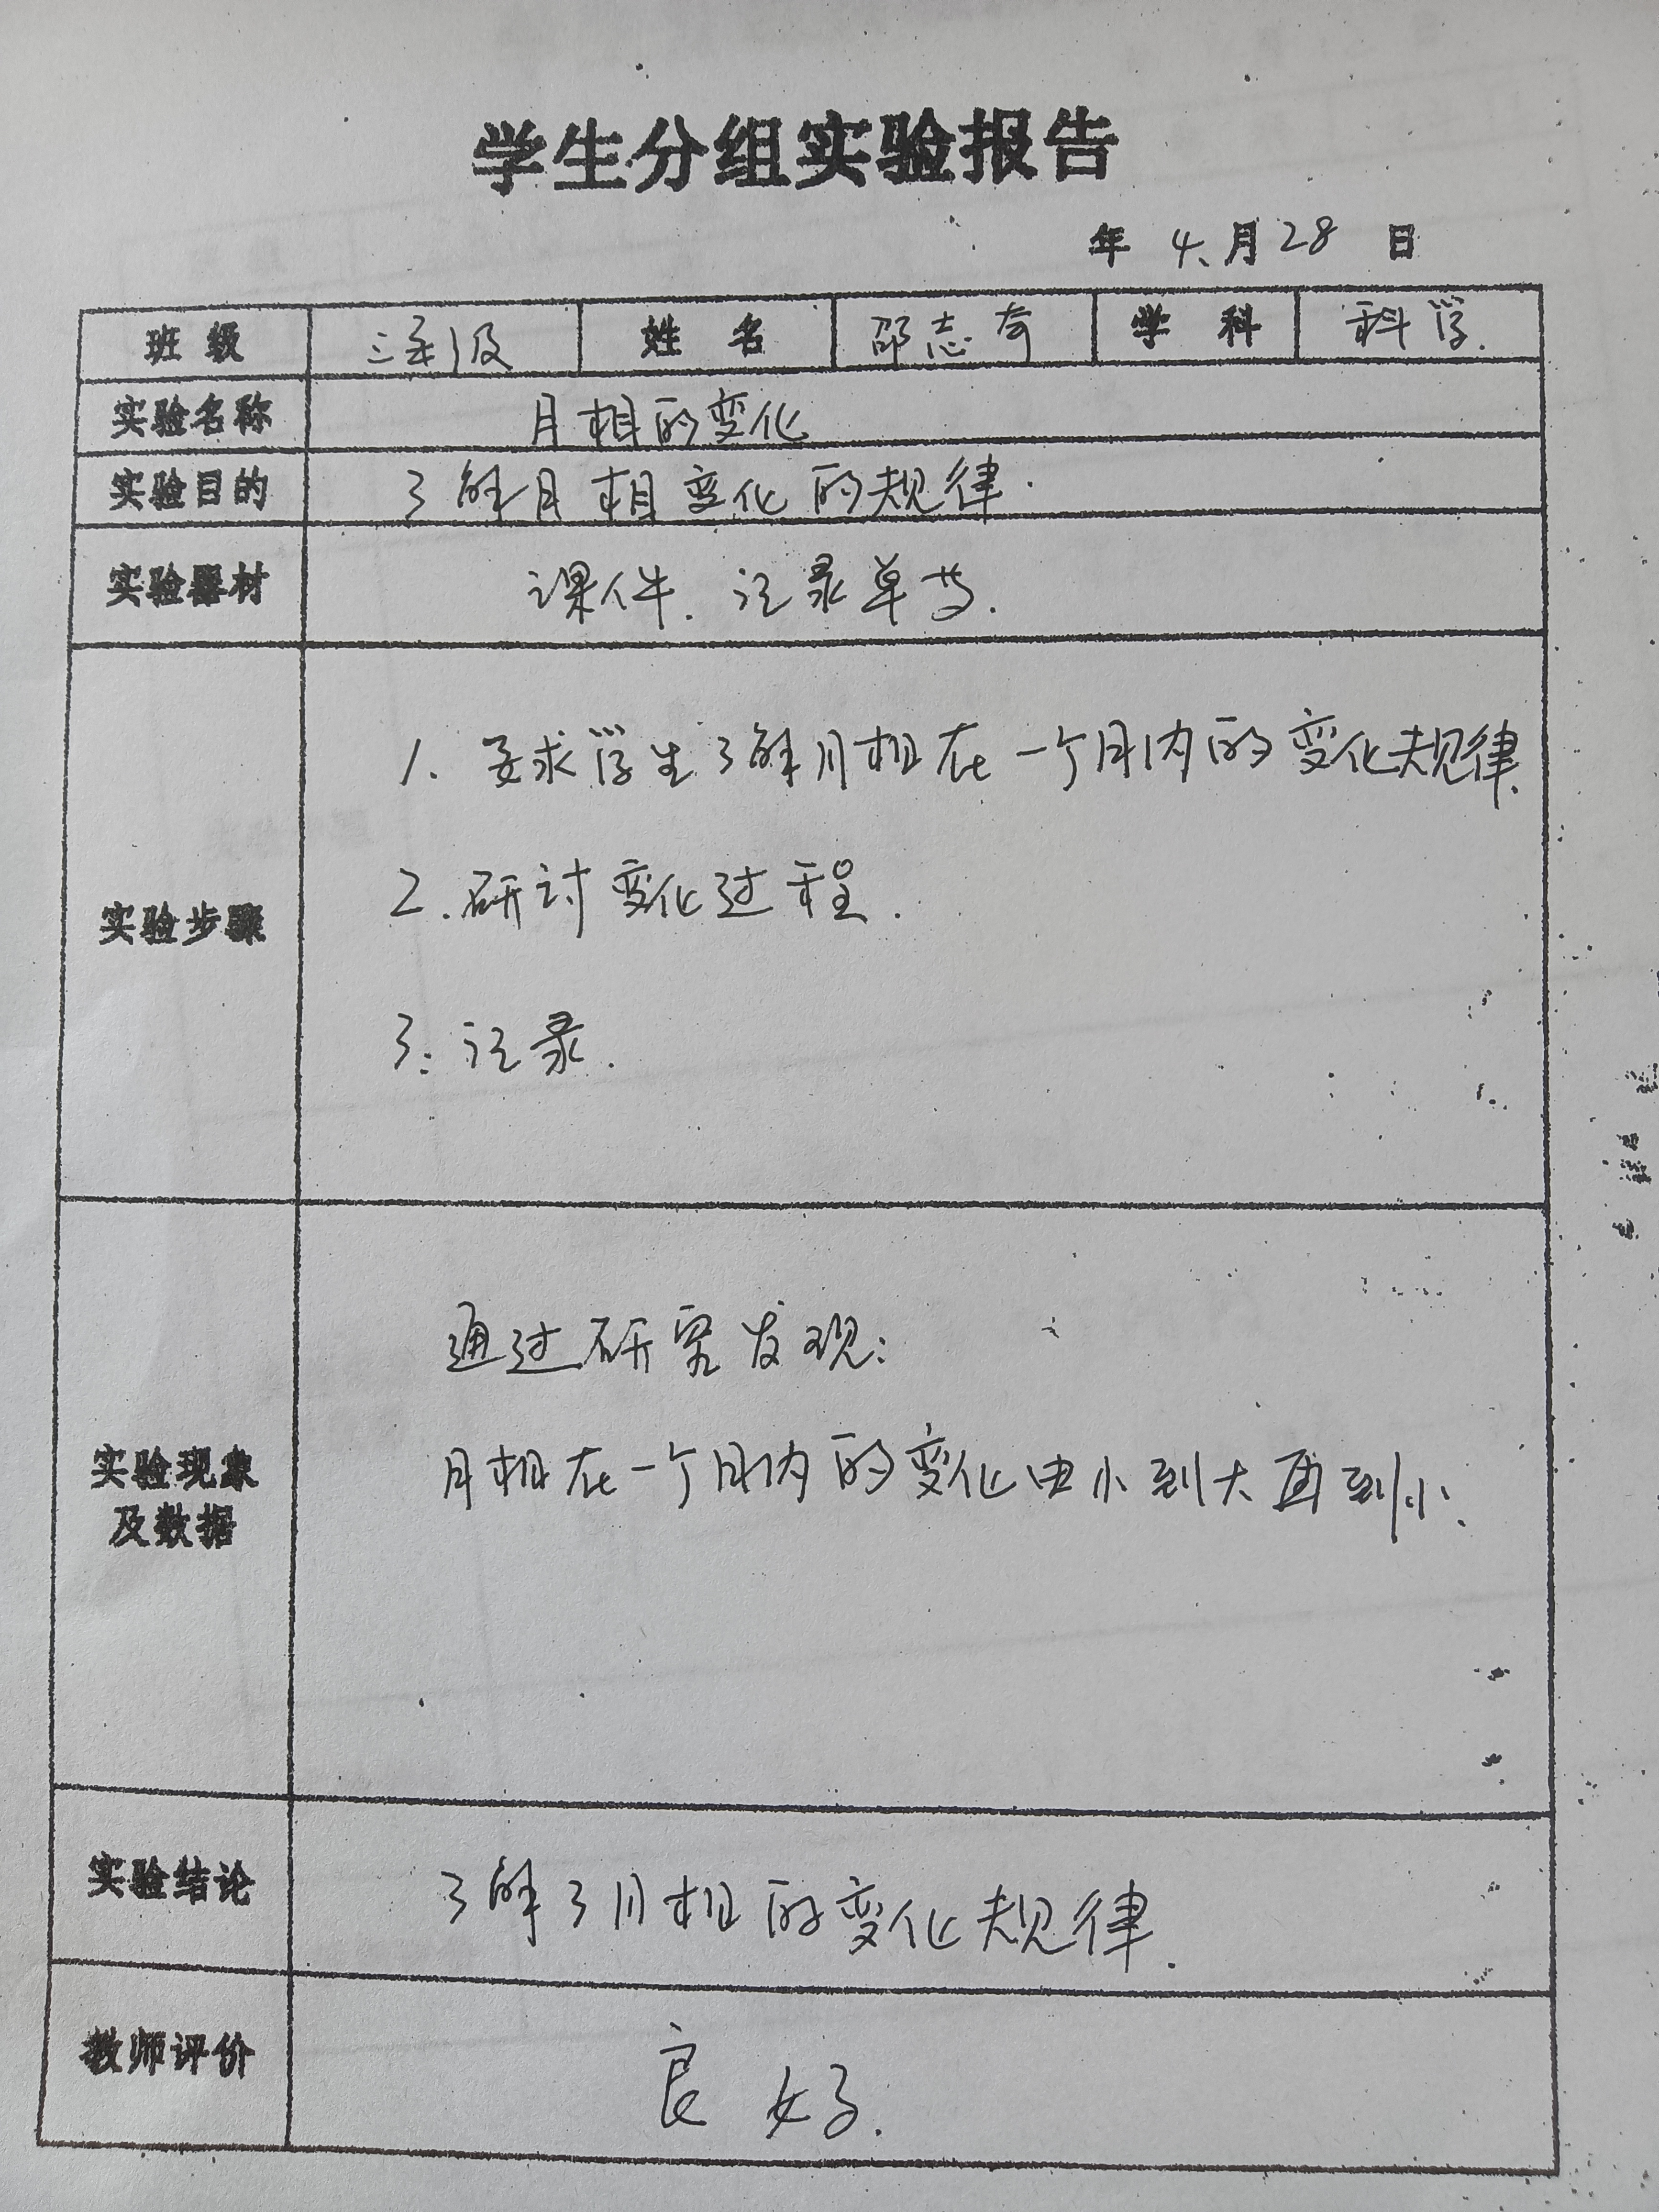 学生分组实验报告
年 4、月 28 日
班 级 三年级 姓 名 邵志奇 学 科 科学.
实验名称 月相的变化
实验目的 了解月相变化的规律.
实验器材 课件. 记录单等.
实验步骤
1. 要求学生了解月相在一个月内的变化规律.
2. 研讨变化过程.
3. 记录.
实验现象
及数据
通过研究发现:
月相在一个月内的变化由小到大再到小.
实验结论 了解了月相的变化规律.
教师评价 良好.